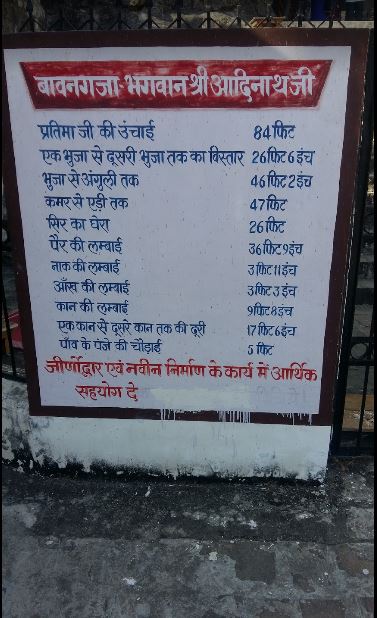 बावनगजा भगवान श्री आदिनाथ जी
प्रतिमा जी की उंचाई 84 फिट
एक भुजा से दूसरी भुजा तक का विस्तार 26 फिट 6 इंच
भुजा से अंगुली तक 46 फिट 2 इंच
कमर से एड़ी तक 47 फिट
सिर का घेरा 26 फिट
पैर की लम्बाई 36 फिट 9 इंच
नाक की लम्बाई 3 फिट 11 इंच
आँख की लम्बाई 3 फिट 3 इंच
कान की लम्बाई 9 फिट 8 इंच
एक कान से दूसरे कान तक की दूरी 17 फिट 6 इंच
पाँव के पंजे की चौड़ाई 5 फिट
जीर्णोद्धार एवं नवीन निर्माण के कार्य में आर्थिक
सहयोग दे